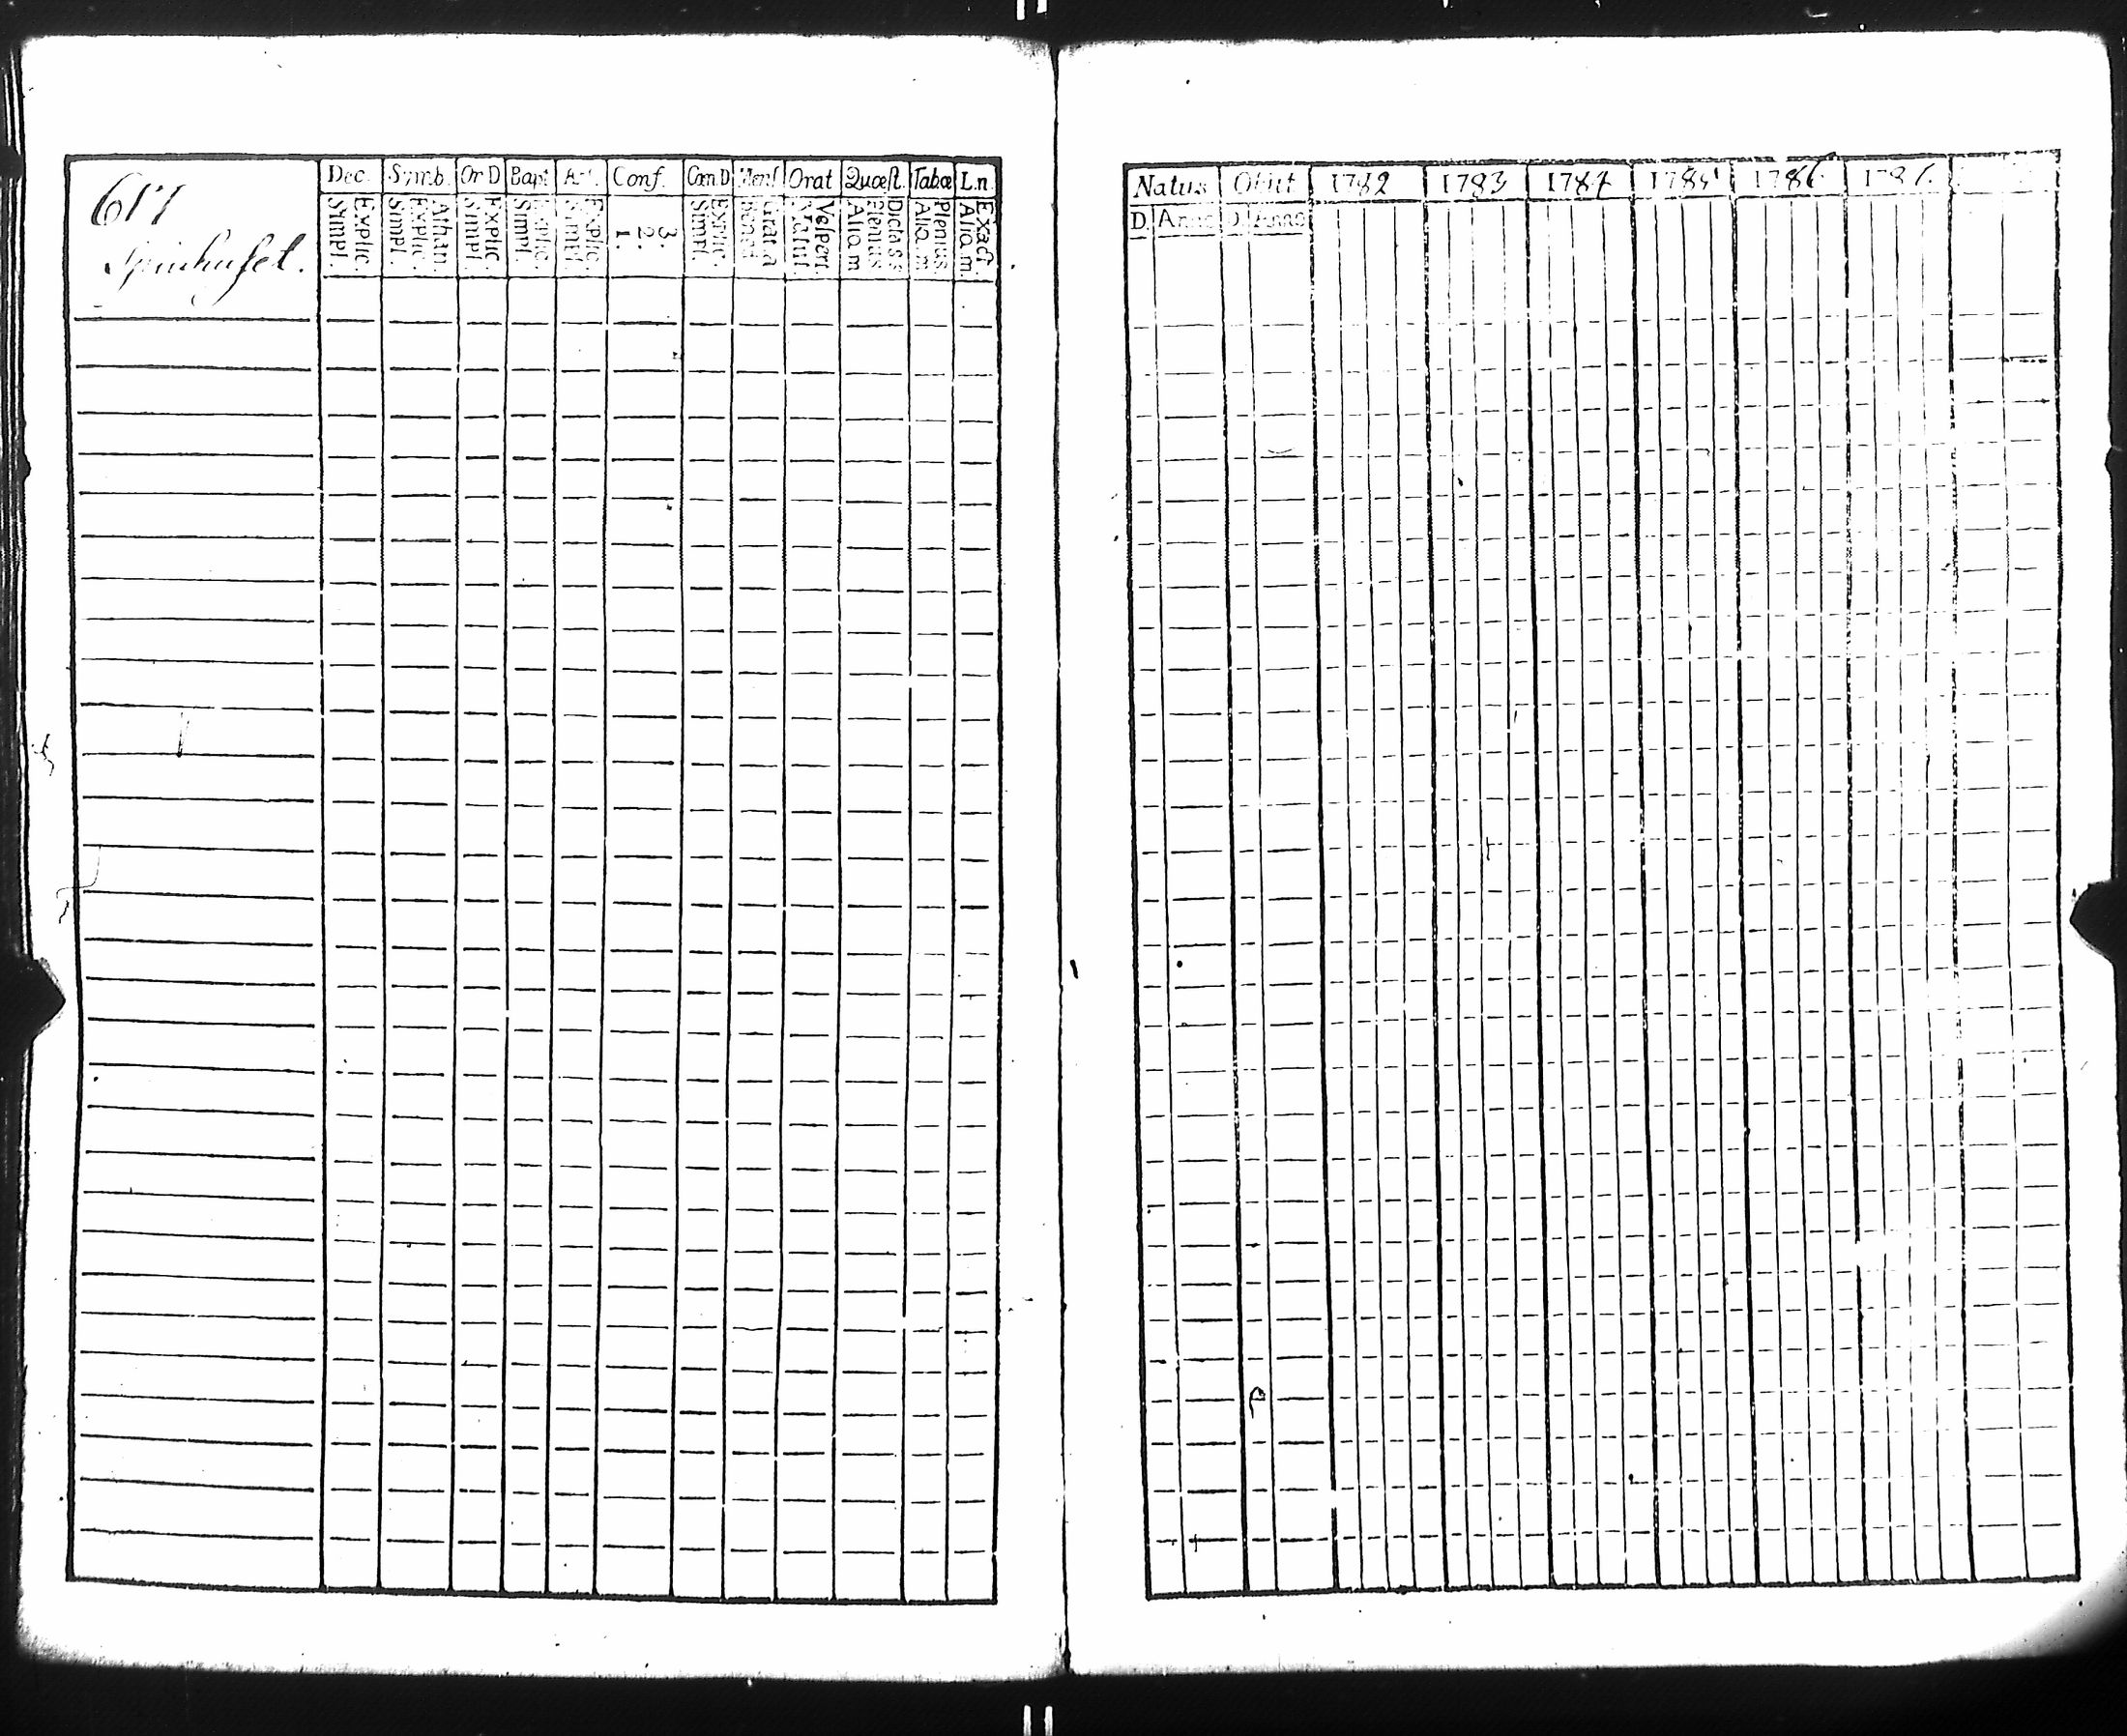 617
Spinhuset.
Dec. Symb. Or D Bapt Conf. Com D Mens Orat Quæst. Tabœ L.n.
Explic. Simpl.
Athan. Explic. Simpl.
Explic. Simpl.
Explic. Simpl.
Explic. Simpl.
3. 2. 1.
Explic. Simpl.
Grat. a Bened.
Vesperi. Matut.
Dict. ss. Plenius Aliq. m
Plenius Aliq. m
Exact. Aliq. m.
Natus Obiit 1782 1783 1784 1785 1786 1787
D. Anno D. Anno